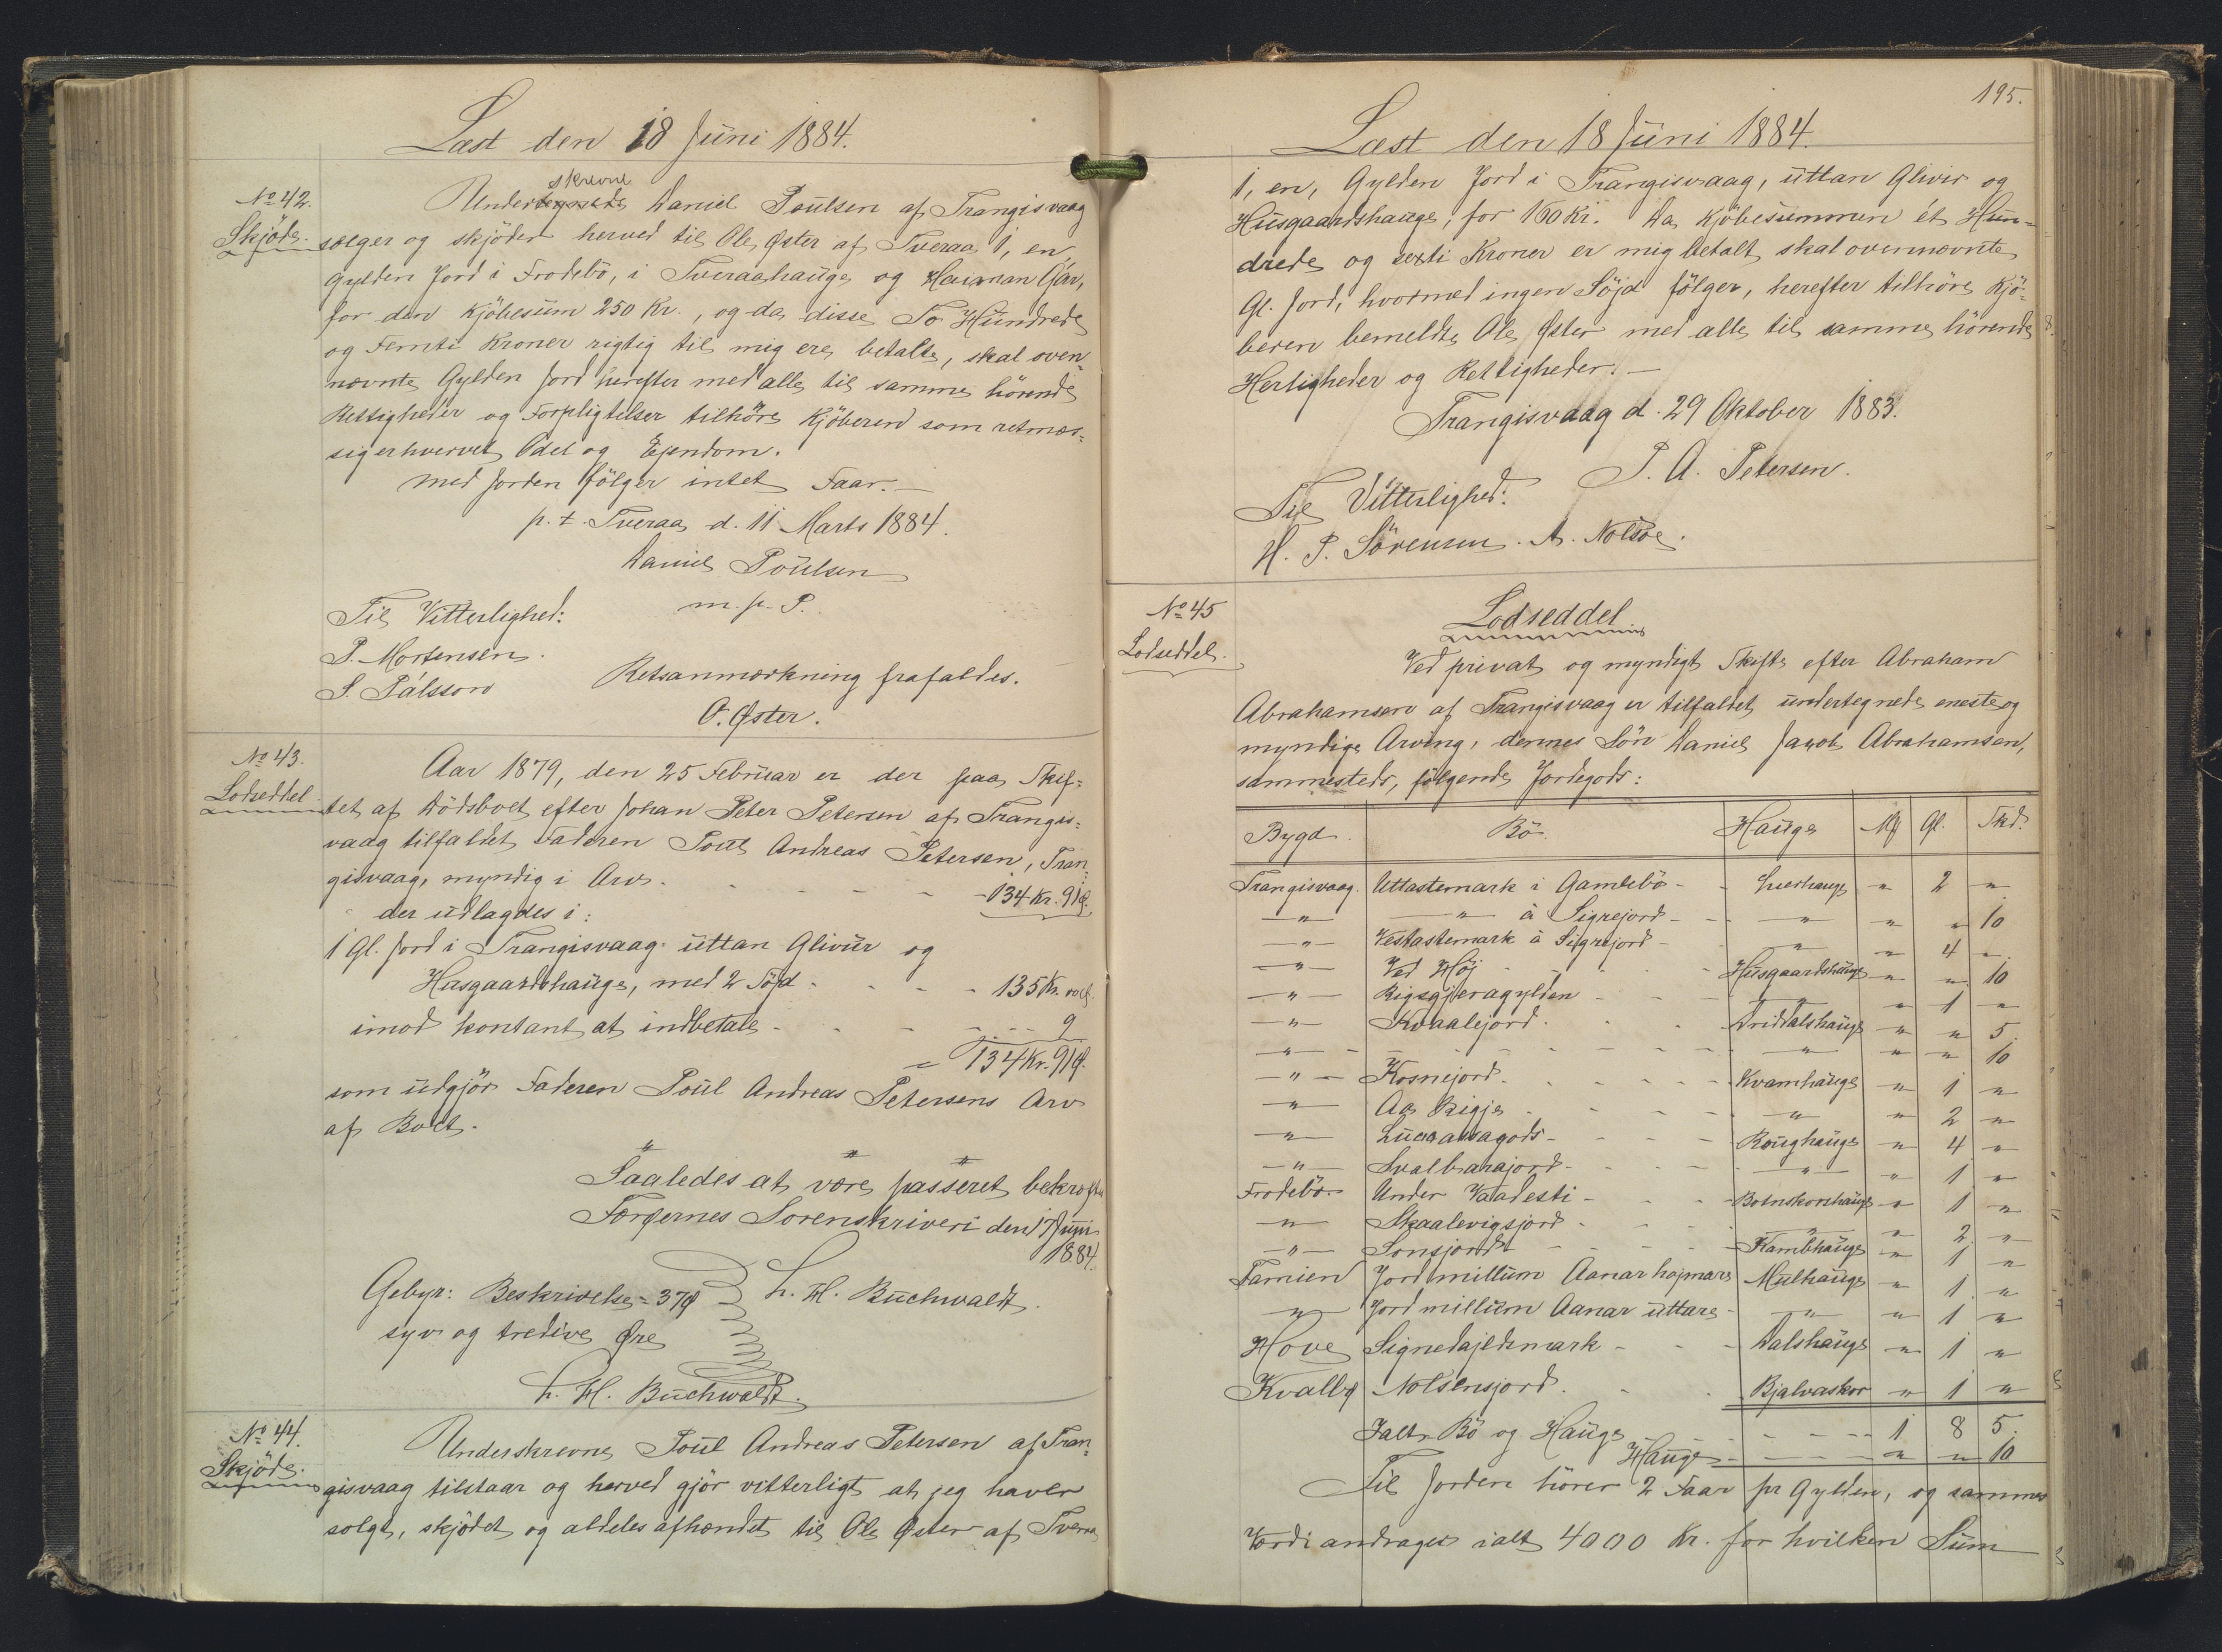 Læst den 18 Juni 1884.
No 42.
Skjöde.
skrevne
Undertegnede Daniel Poulsen af Trangisvaag
sælger og skjöder herved til Ole Øster af Tveraa 1, en
Gylden Jord i Frodebö, i Tveraahauge og Haiman Gjáv,
for den Kjöbesum 250 Kr., og da disse To Hundrede
og Femti Kroner rigtig til mig ere betalte, skal oven-
nævnte Gylden Jord herefter med alle til samme hörende
Rettigheder og Forpligtelser tilhöre Kjöberen som retmæs-
sig erhvervet Odel og Ejendom.
Med Jorden fölger intet Faar. —
p. t. Tveraa d. 11 Marts 1884.
Daniel Poulsen
m. p. P.
Til Vitterlighed:
P. Mortensen.
S. Pálsson
Retsanmærkning frafaldes.
O. Øster.
No 43.
Lodseddel.
Aar 1879, den 25 Februar er der paa Skif-
tet af Dödsboet efter Johan Peter Petersen af Trangis-
vaag tilfaldet Faderen Poul Andreas Petersen, Tran-
gisvaag, myndig i Arv. - - - - 134 Kr. 91 Ø.
der udlagdes i:
1 Gl. Jord i Trangisvaag uttan Glivur og
Husgaardshauge, med 2 Söjd - - - - 135 Kr. 00 Ø.
imod kontant at indbetale - - - - 9
= 134 Kr. 91 Ø.
som udgjör Faderen Poul Andreas Petersens Arv
af Boet.
" " "
Saaledes at være passeret bekræftes
Færøernes Sorenskriveri den 17 Juni
1884.
Gebyr: Beskrivelse = 37 Ø
syv og tredive Øre
L. H. Buchwaldt.
L. H. Buchwaldt.
No 44.
Skjöde.
Underskrevne Poul Andreas Petersen af Tran-
gisvaag tilstaar og herved gjör vitterligt at jeg haver
solgt, skjödet og aldeles afhændet til Ole Øster af Tveraa
195.
Læst den 18 Juni 1884.
1, en, Gylden Jord i Trangisvaag, uttan Glivur og
Husgaardshauge, for 160 Kr. Da Kjöbesummen ét Hun-
drede og sexti Kroner er mig betalt skal ovennævnte
Gl. Jord, hvormed ingen Söjd fölger, herefter tilhöre Kjö-
beren bemeldte Ole Øster med alle til samme hörende
Herligheder og Rettigheder. —
Trangisvaag d. 29 Oktober 1883.
P. A. Petersen.
Til Vitterlighed:
H. P. Sörensen. A. Nolsöe.
No 45
Lodseddel.
Lodseddel
Ved privat og myndigt Skifte efter Abraham
Abrahamsen af Trangisvaag er tilfaldet undertegnede eneste og
myndige Arving, dennes Sön Daniel Jacob Abrahamsen,
sammesteds, fölgende Jordegods:
Bygd. Bö. Hauge Mk Gl. Skd.
Trangisvaag. Uttastemark i Gamlebö - - " 2 "
— " — — " — á Signejord - - " " " 10
— " — Vestastemark á Signejord - " " 4 "
— " — Ved Høj - - - Husgaardshauge " " 10
— " — Rigsgjeragylden - - " " 1 "
— " — Kvaalejord. - - - Triddalshauge " " 5
— " — - - - - - " " " 10
— " — Kosnejord. - - - Kvamhauge " 1 "
— " — Aa Rigje - - - " " 2 "
— " — - - - Roughauge " 4 "
— " — Svalbarajord - - - " " 1 "
Frodebö. Under Vaadesti - - - Botnskorshauge " 1 "
— " — Skaalevigsjord - - - " " 2 "
— " — Sonsjord - - - Kambhauge " 1 "
Famien Jord millum Aanar hojmare Mulhauge " 1 "
— " — Jord millum Aanar uttare - " " 1 "
Hove Signedajldsmark - - - Dalshauge " 1 "
Kvalbø Nolsensjord. - - Bjalvaskor " 1 "
Ialt Bö og Hauge - - - 1 8 5
Hauge - - - " " 10
Til Jorden hörer 2 Faar pr Gylden, og sammes
Værdi andrages ialt 4000 Kr. for hvilken Sum